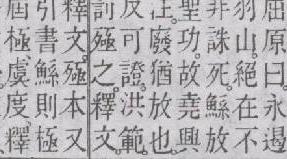 屈原曰永遏
羽山。絕在不
非誅死鯀放
聖功。故堯興
注。廢猶放也。
反可證。洪範
殛之。釋文。
釋文。殛本又
引書鯀則極
極虞度釋